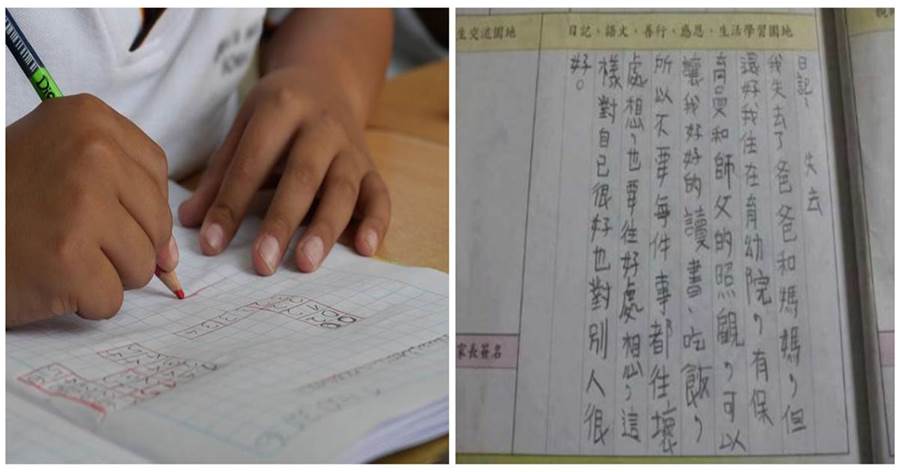 生交流園地
日記、語文、善行、感恩、生活學習園地
日記、 失去
我失去了爸爸和媽媽，但
還好我住在育幼院，有保
育員和師父的照觀，可以
讓我好好的讀書、吃飯，
所以不要每件事都往壞
處想，也要往好處想，這
樣對自己很好也對別人很
好。
家長簽名